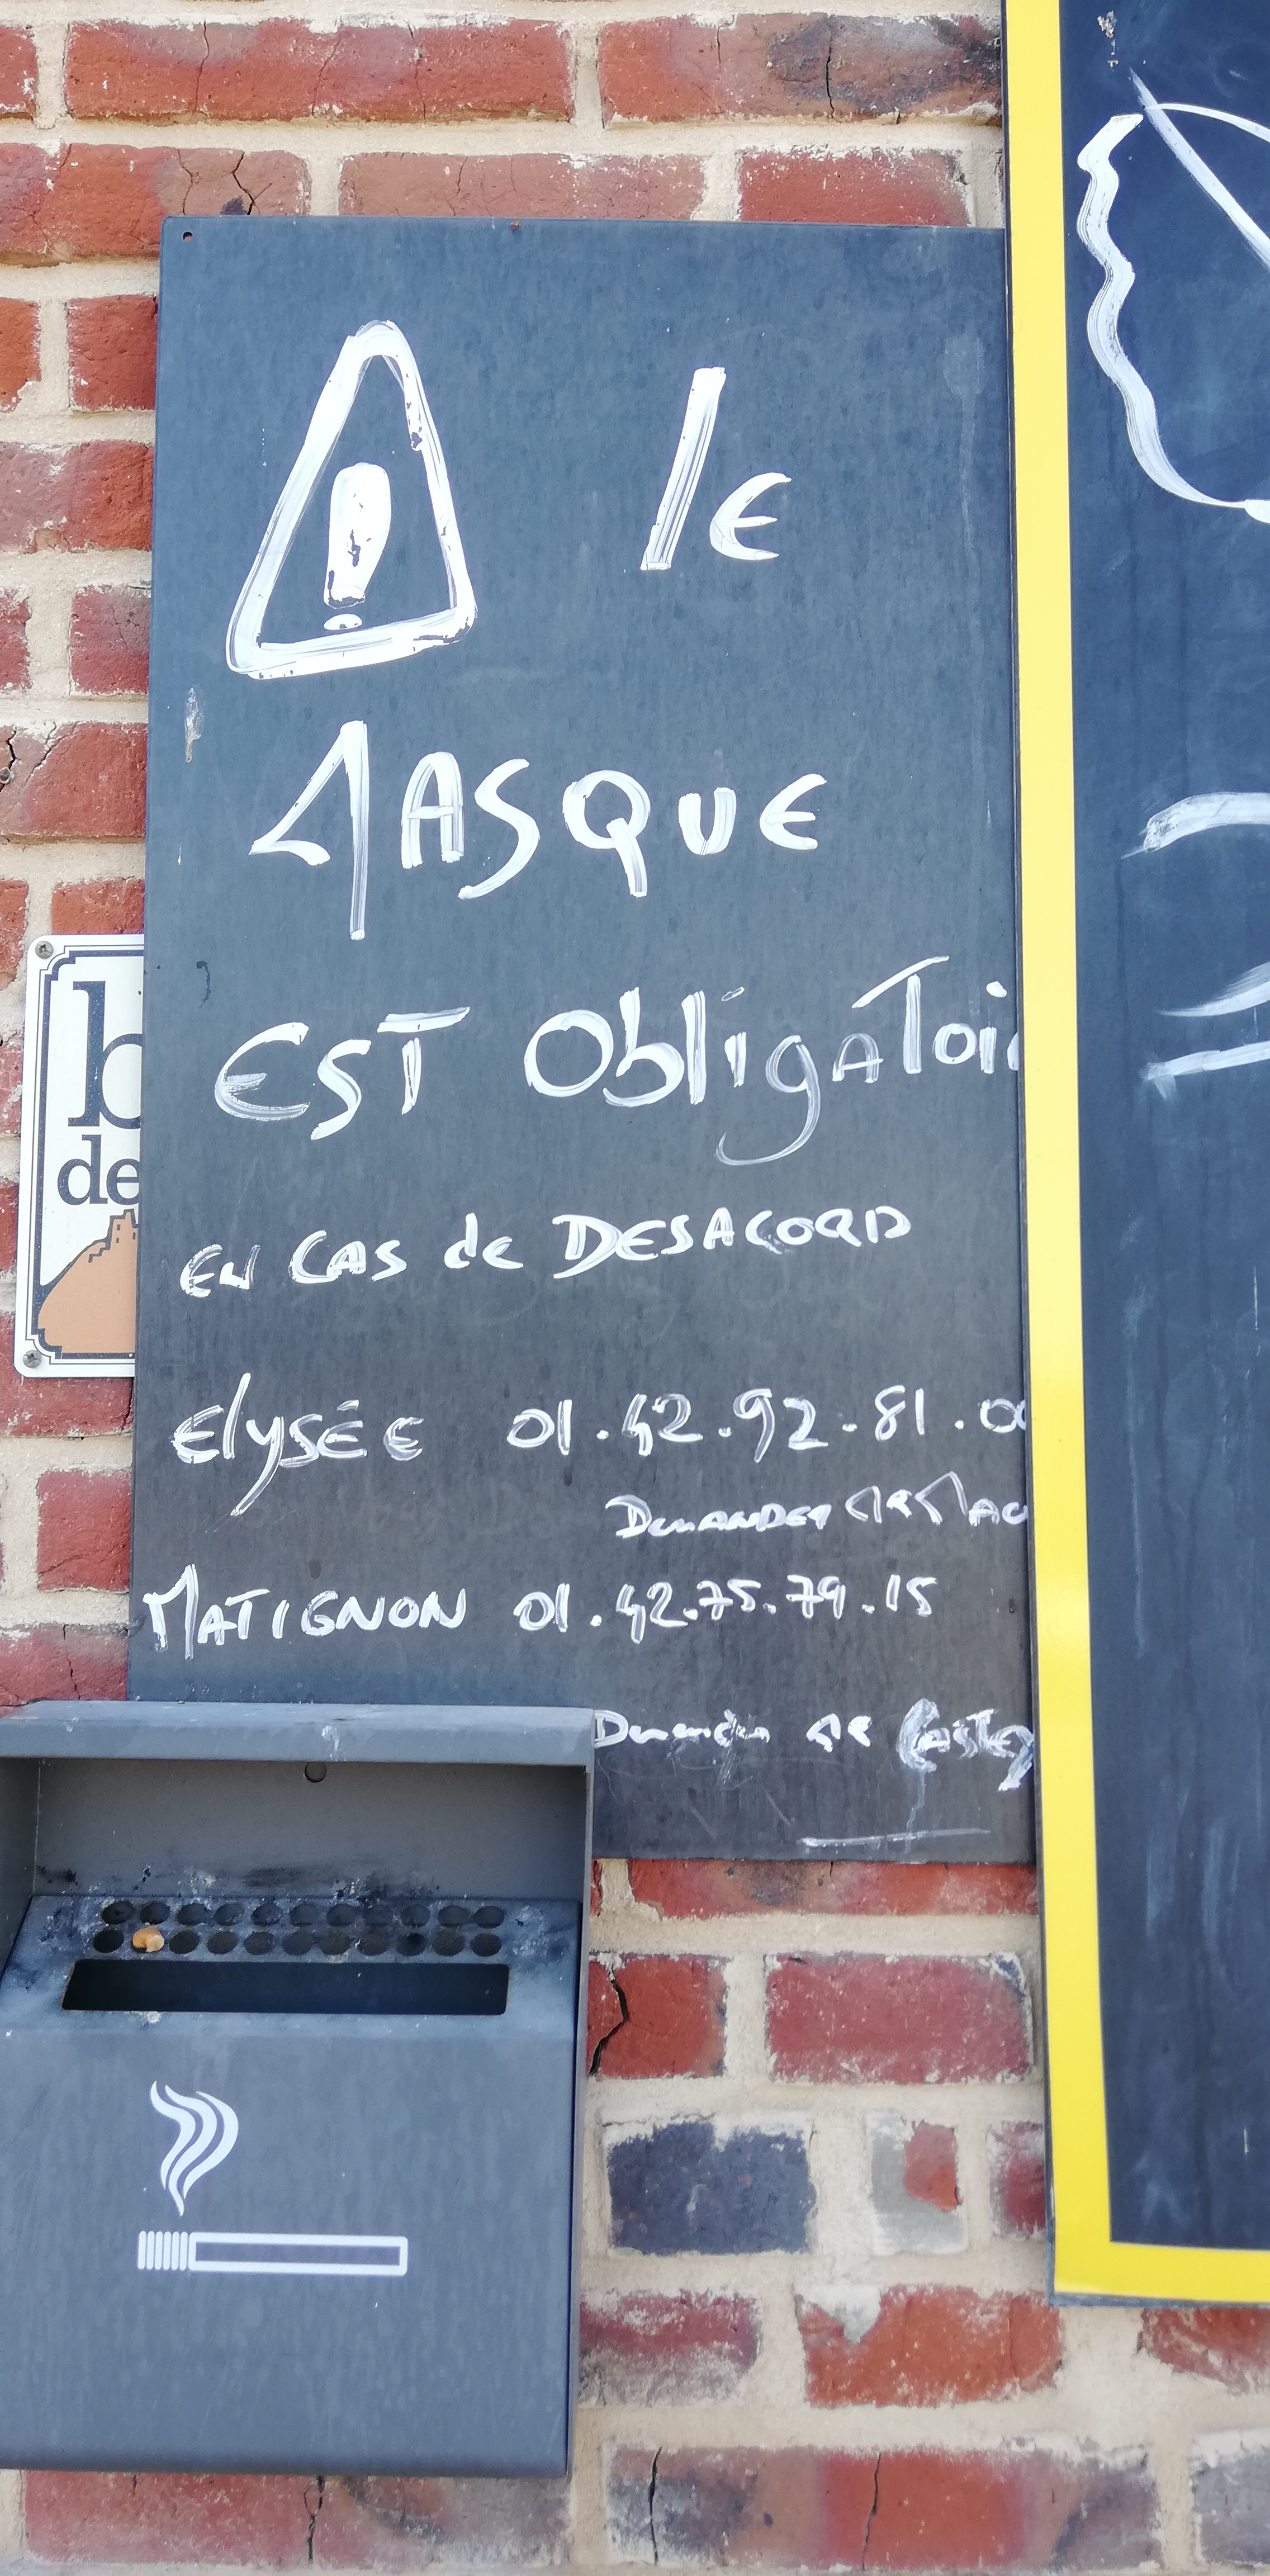 le
MASQUE
EST ObligATOi
EN CAS de DESACORD
ElYSÉE 01.42.92-81.00
DEMANDER MR MAC
MATIGNON 01.42.75.79.15
Demander MR CASTEX
b
de